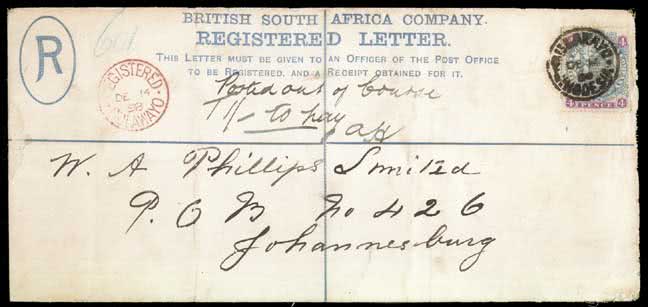 BRITISH SOUTH AFRICA COMPANY.
REGISTERED LETTER.
THIS LETTER MUST BE GIVEN TO AN OFFICER OF THE POST OFFICE
TO BE REGISTERED, AND A RECEIPT OBTAINED FOR IT.
R
601
REGISTERED
DE 14
98
BULAWAYO
BULAWAYO
RHODESIA
4 PENCE 4
Posted out of Course
1/- to pay
W. A Phillips Limited
P. O B No 426
Johannesburg